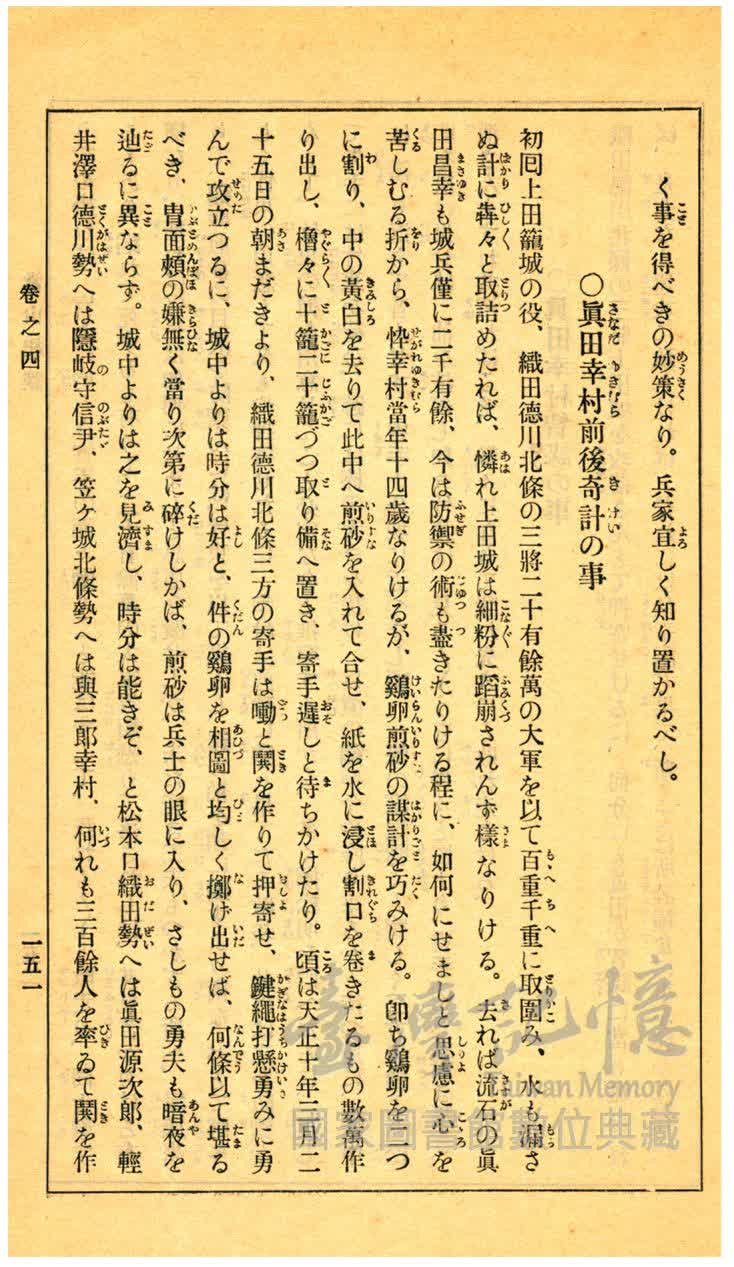 く事を得べきの妙策なり。兵家宜しく知り置かるべし。
○眞田幸村前後奇計の事
初囘上田籠城の役、織田德川北條の三將二十有餘萬の大軍を以て百重千重に取圍み、水も漏さ
ぬ計に犇々と取詰めたれば、憐れ上田城は細粉に蹈崩されんず樣なりける。去れば流石の眞
田昌幸も城兵僅に二千有餘、今は防禦の術も盡きたりける程に、如何にせましと思慮に心を
苦しむる折から、悴幸村當年十四歲なりけるが、鷄卵煎砂の謀計を巧みける。卽ち鷄卵を二つ
に割り、中の黃白を去りて此中へ煎砂を入れて合せ、紙を水に浸し割口を卷きたるもの數萬作
り出し、櫓々に十籠二十籠づつ取り備へ置き、寄手遲しと待ちかけたり。頃は天正十年三月二
十五日の朝まだきより、織田德川北條三方の寄手は噇と鬨を作りて押寄せ、鍵繩打懸勇みに勇
んで攻立つるに、城中よりは時分は好しと、件の鷄卵を相圖と均しく擲げ出せば、何條以て堪る
べき、冑面頰の嫌無く當り次第に碎けしかば、煎砂は兵士の眼に入り、さしもの勇夫も暗夜を
辿るに異ならず。城中よりは之を見濟し、時分は能きぞ、と松本口織田勢へは眞田源次郎、輕
井澤口德川勢へは隱岐守信尹、笠ヶ城北條勢へは與三郎幸村、何れも三百餘人を率ゐて鬨を作
卷之四
一五一
臺灣記憶
Taiwan Memory
國家圖書館數位典藏